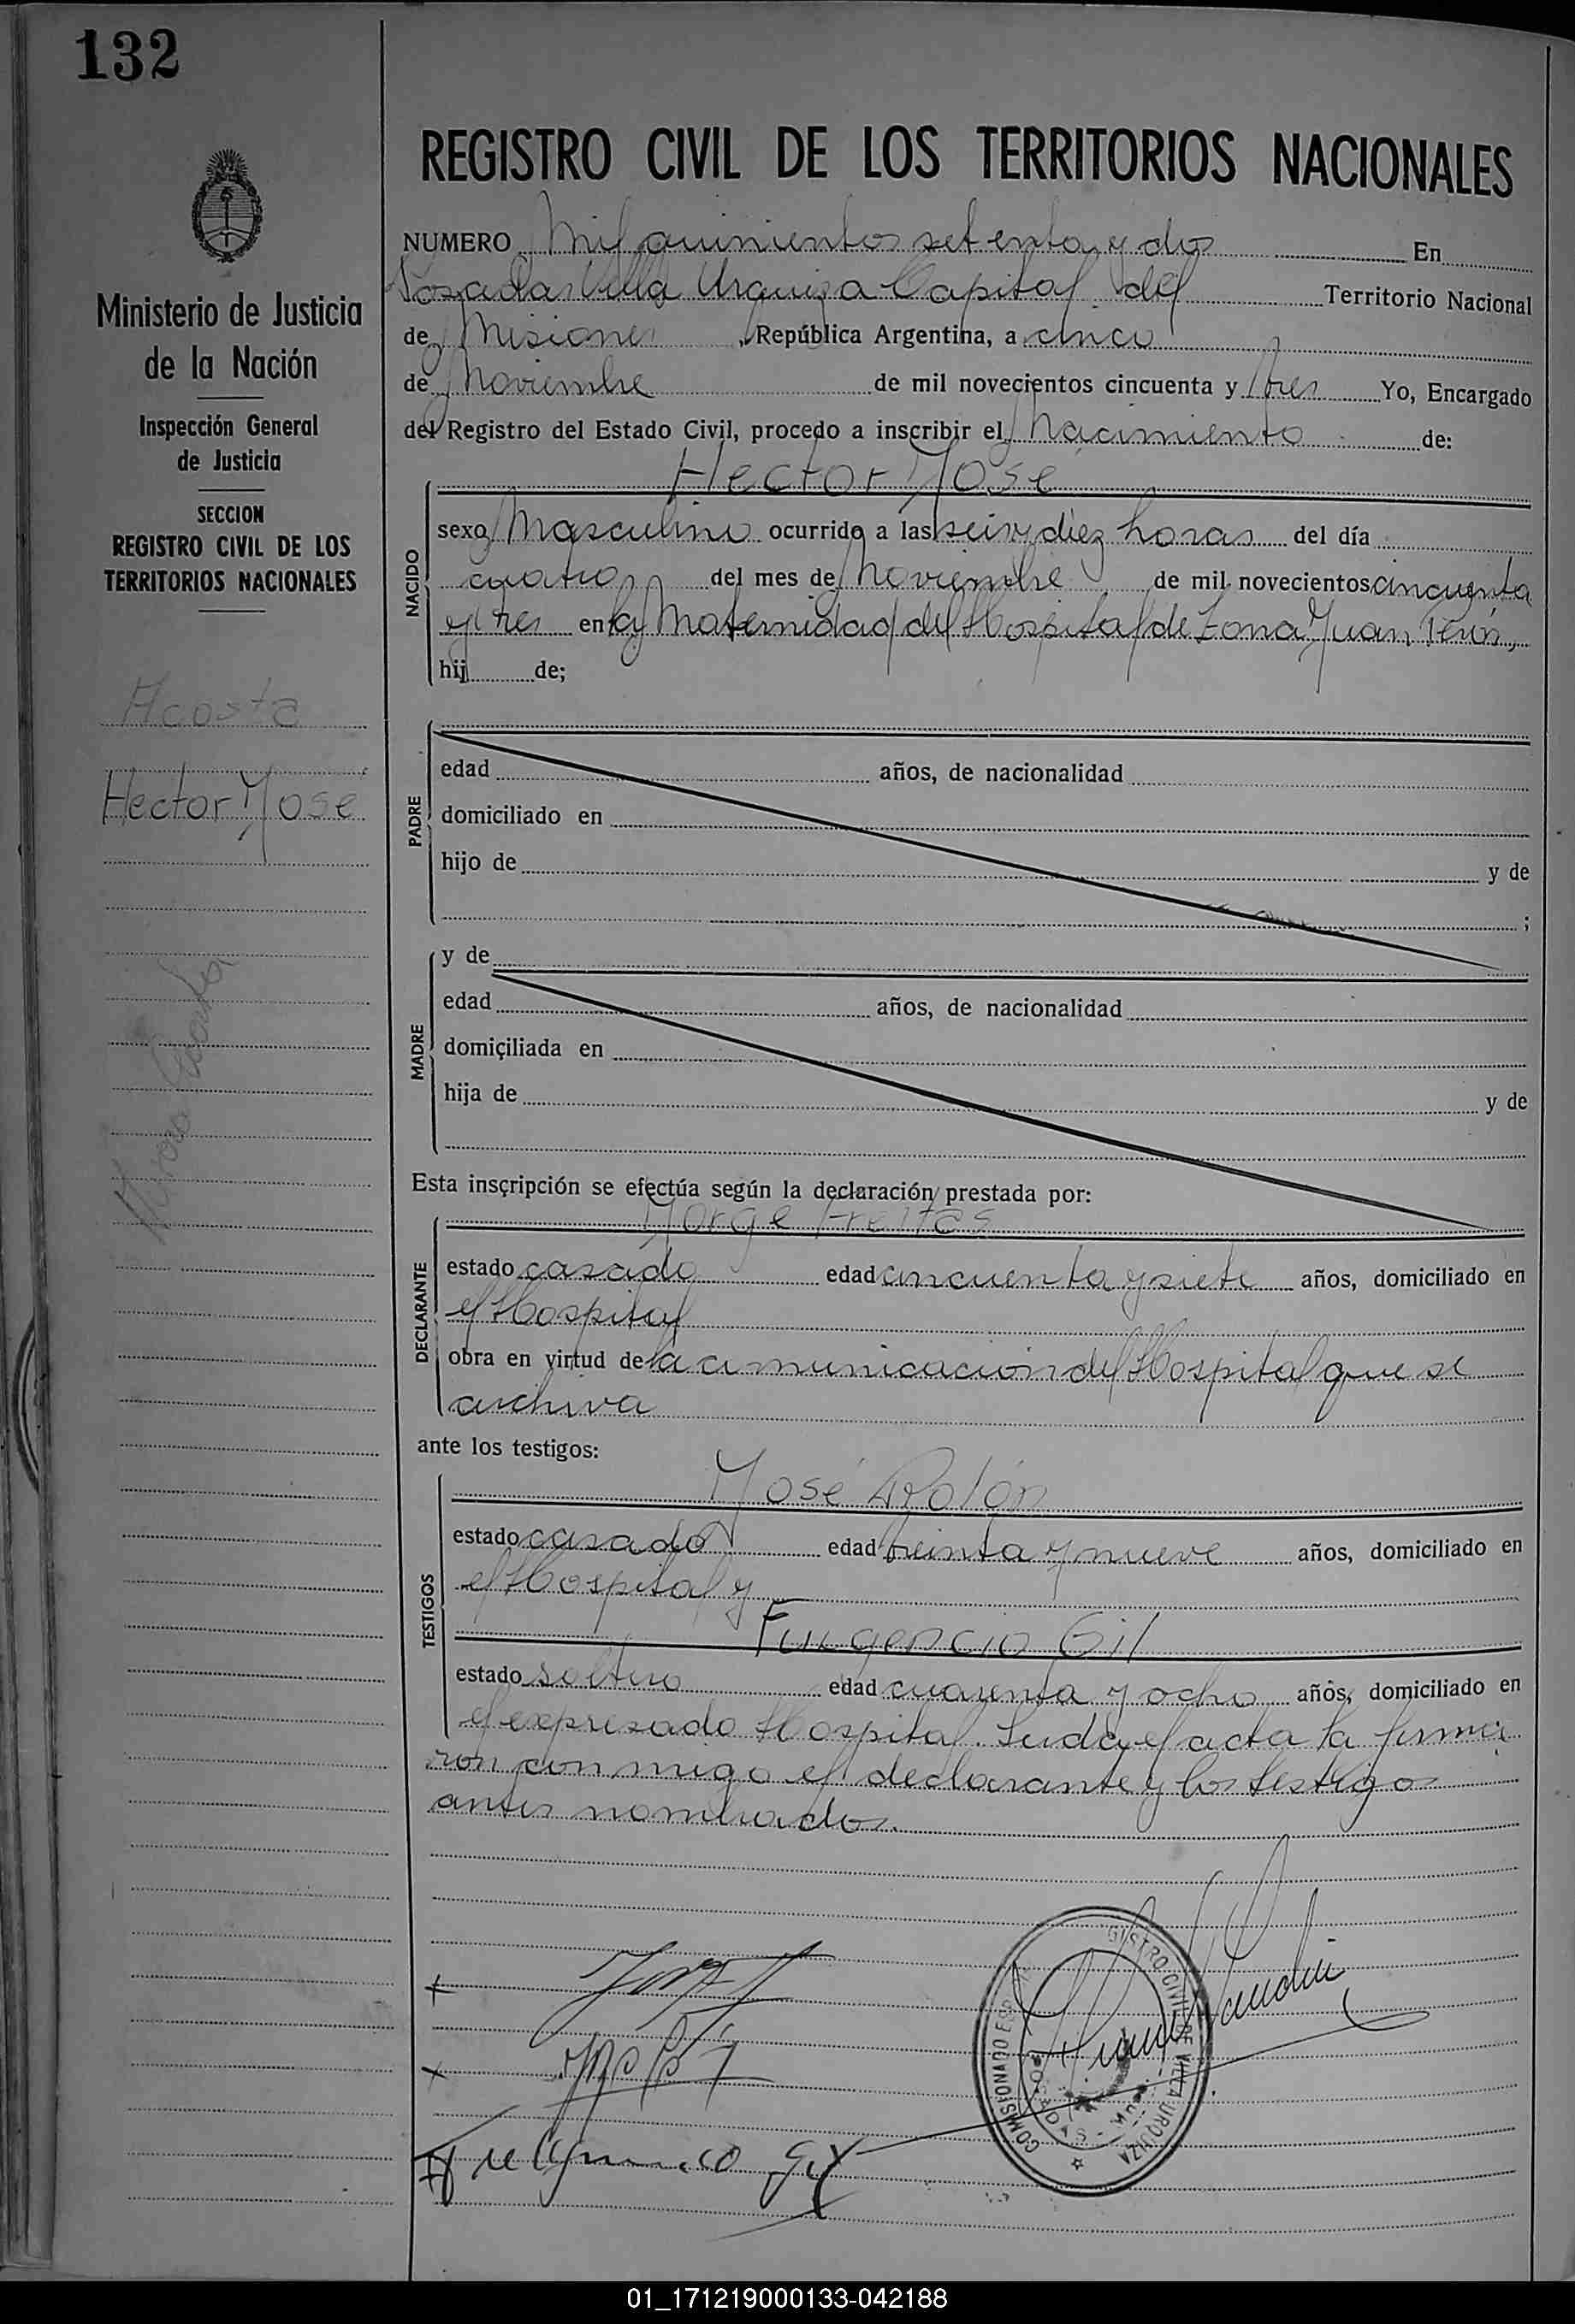 132
REGISTRO CIVIL DE LOS TERRITORIOS NACIONALES
Ministerio de Justicia
de la Nación
Inspección General
de Justicia
SECCION
REGISTRO CIVIL DE LOS
TERRITORIOS NACIONALES
Acosta
Hector Jose
Acosta
NUMERO Mil quinientos setenta y dos En
Posadas Villa Urquiza Capital del Territorio Nacional
de Misiones, República Argentina, a cinco
de Noviembre de mil novecientos cincuenta y tres Yo, Encargado
del Registro del Estado Civil, procedo a inscribir el Nacimiento de:
Hector Jose
NACIDO
sexo Masculino ocurrido a las seis y diez horas del día
cuatro del mes de Noviembre de mil novecientos cincuenta
y tres en la Maternidad del Hospital de Zona Juan Perón,
hij de;
PADRE
edad años, de nacionalidad
domiciliado en
hijo de y de
;
MADRE
y de
edad años, de nacionalidad
domiciliada en
hija de y de
Esta inscripción se efectúa según la declaración prestada por:
Jorge Freitas
DECLARANTE
estado casado edad cincuenta y siete años, domiciliado en
el Hospital
obra en virtud de la comunicación del Hospital que se
archiva
ante los testigos:
José Rolón
TESTIGOS
estado casado edad treinta y nueve años, domiciliado en
el Hospital y
Fulgencio Gil
estado soltero edad cuarenta y ocho años, domiciliado en
el expresado Hospital. Leida el acta la firma
ron conmigo el declarante y los testigos
antes nombrados.
COMISIONADO REGISTRO CIVIL DE VILLA URQUIZA
POSADAS - Mnes.
Gil
01_171219000133-042188